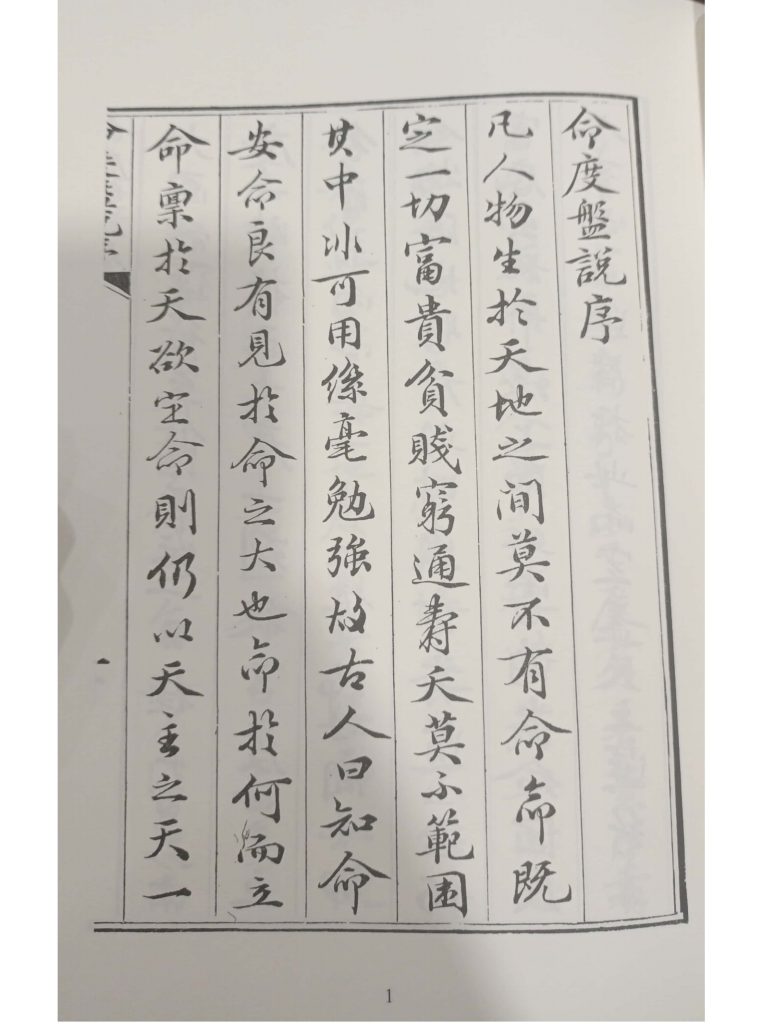 命度盤說序
凡人物生於天地之間莫不有命命既
定一切富貴貧賤窮通壽夭莫不範圍
其中非可用絲毫勉強故古人曰知命
安命良有見於命之大也命於何而立
命稟於天欲定命則仍以天主之天一
命度盤說序
1